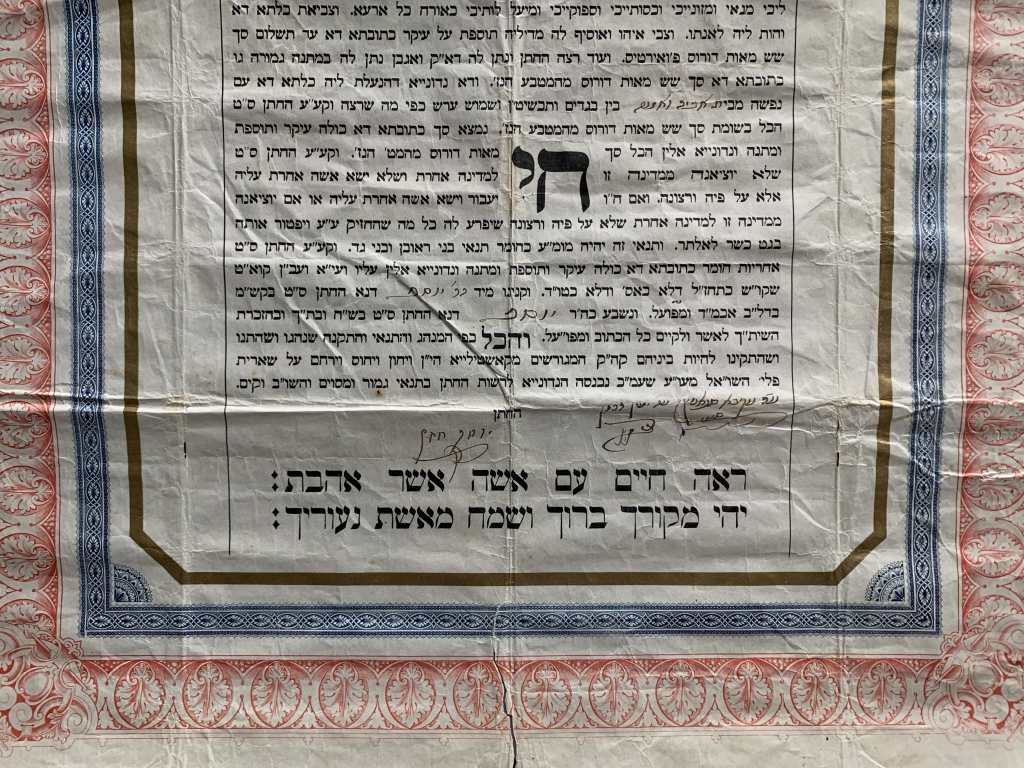 ליכי מנאי ומזונייכי וכסותייכי וסיפוקייכי ומיעל לותיכי כאורח כל ארעא. וצביאת כלתא דא
והות ליה לאנתו. וצבי איהו ואוסיף לה מדיליה תוספת על עיקר כתובתא דא עד תשלום סך
שש מאות דורוס פ״ואירטיס. ועוד רצה החתן ונתן לה דא״ק ואגבן נתן לה במתנה גמורה גו
כתובתא דא סך שש מאות דורוס מהמטבע הנז׳. ודא נדונייא דהנעלת ליה כלתא דא עם
נפשה מבית בין בגדים ותכשיטין ושמוש ערש כפי מה שרצה וקע״ע החתן ס״ט
הכל בשומת סך שש מאות דורוס מהמטבע הנז׳. נמצא סך כתובתא דא כולה עיקר ותוספת
ומתנה ונדונייא אלין הכל סך חי מאות דורוס מהמט׳ הנז׳. וקע״ע החתן ס״ט
שלא יוציאנה ממדינה זו למדינה אחרת ושלא ישא אשה אחרת עליה
אלא על פיה ורצונה. ואם ח״ו יעבור וישא אשה אחרת עליה או אם יוציאנה
ממדינה זו למדינה אחרת שלא על פיה ורצונה שיפרע לה כל מה שהחזיק ע״ע ויפטור אותה
בגט כשר לאלתר. ותנאי זה יהיה מומ״ע כחומר תנאי בני ראובן ובני גד. וקע״ע החתן ס״ט
אחריות חומר כתובתא דא כולה עיקר ותוספת ומתנה ונדונייא אלין עליו ועי״א ועב״ן קוא״ט
שקו״ש בתחז״ל דלא כאס׳ ודלא כטו״ד. וקנינו מיד דנא החתן ס״ט בקש״מ
בדל״ב אכמ״ד ומפועל. ונשבע כה״ר יוסף דנא החתן ס״ט בש״ח ובת״ך ובהזכרת
השית״ך לאשר ולקיים כל הכתוב ומפו״על. והכל כפי המנהג והתנאי והתקנה שנהגו ושהתנו
ושהתקינו להיות ביניהם קה״ק המגורשים מקאשטילייא הי״ן ויחון ויחוס וירחם על שארית
פלי׳ השו״אל מעו״ע שעמ״כ נכנסה הנדונייא לרשות החתן בתנאי גמור ומסוים והשו״ב וקים.
החתן
יוסף
ראה חיים עם אשה אשר אהבת:
יהי מקורך ברוך ושמח מאשת נעוריך: